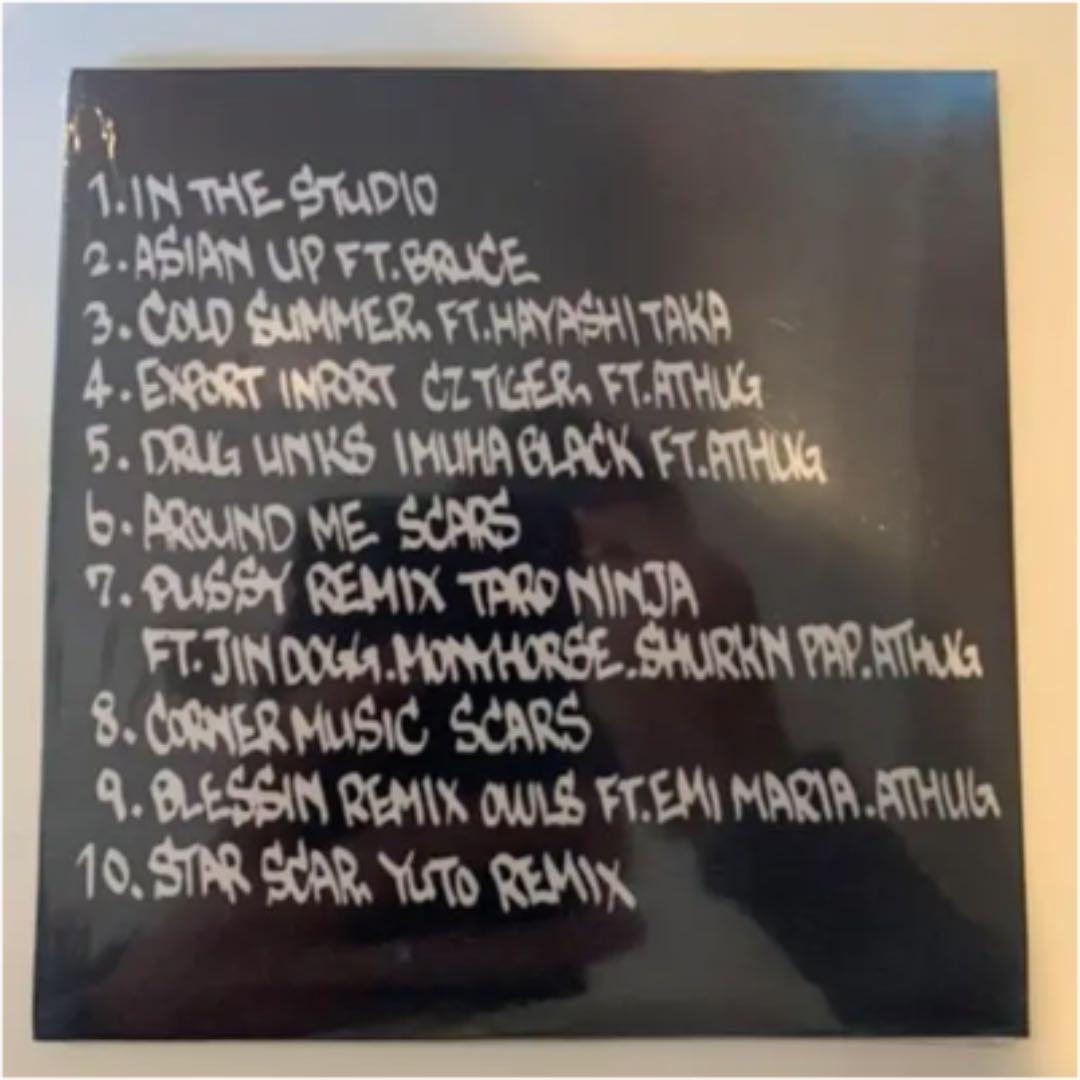 1. IN THE STUDIO
2. ASIAN UP FT. BRUCE
3. COLD SUMMER FT. HAYASHI TAKA
4. EXPORT INPORT CZ TIGER FT. ATHUG
5. DRUG LINKS IMUHA BLACK FT. ATHUG
6. AROUND ME SCARS
7. PUSSY REMIX TARO NINJA
FT. JIN DOGG. MONYHORSE. SHURKN PAP. ATHUG
8. CORNER MUSIC SCARS
9. BLESSIN REMIX OWLS FT. EMI MARIA. ATHUG
10. STAR SCAR YUTO REMIX